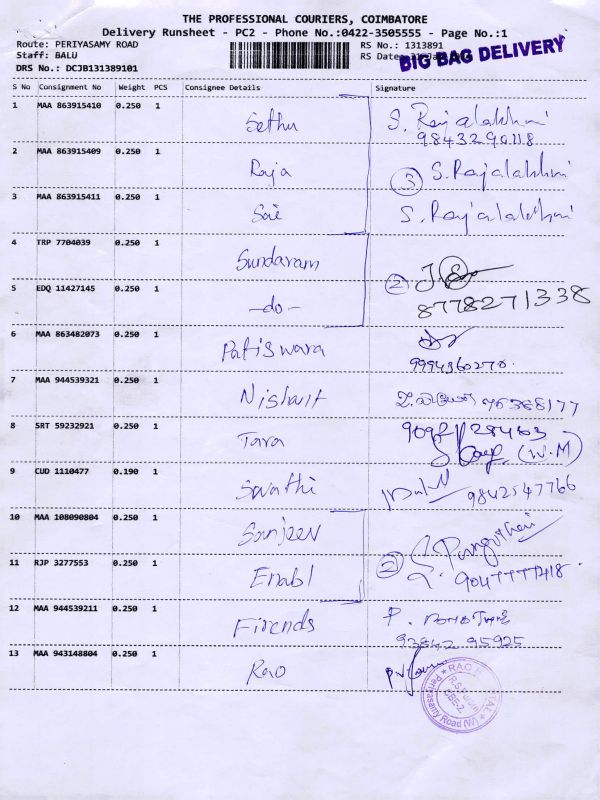 THE PROFESSIONAL COURIERS, COIMBATORE
Delivery Runsheet - PC2 - Phone No.:0422-3505555 - Page No.:1
Route: PERIYASAMY ROAD RS No.: 1313891
Staff: BALU RS Date:
BIG BAG DELIVERY
DRS No.: DCJB131389101
S No Consignment No Weight PCS Consignee Details Signature
1 MAA 863915410 0.250 1 Sethu S. Rajalakhmi
9843290118
2 MAA 863915409 0.250 1 Raja 3 S. Rajalakhmi
3 MAA 863915411 0.250 1 Sai S. Rajalakhmi
4 TRP 7704039 0.250 1 Sundaram
5 EDQ 11427145 0.250 1 -do- 2 8778271338
6 MAA 863482073 0.250 1 Patiswara
9994360270
7 MAA 944539321 0.250 1 Nishait
8 SRT 59232921 0.250 1 Tara
(W.M)
9 CUD 1110477 0.190 1 Swathi 9842547766
10 MAA 108090804 0.250 1 Sanjeev
11 RJP 3277553 0.250 1 Enabl 2
12 MAA 944539211 0.250 1 Firends
93842 95925
13 MAA 943148804 0.250 1 Rao
RAO
R.S.Puram
CBE-2
Periyasamy Road (W)